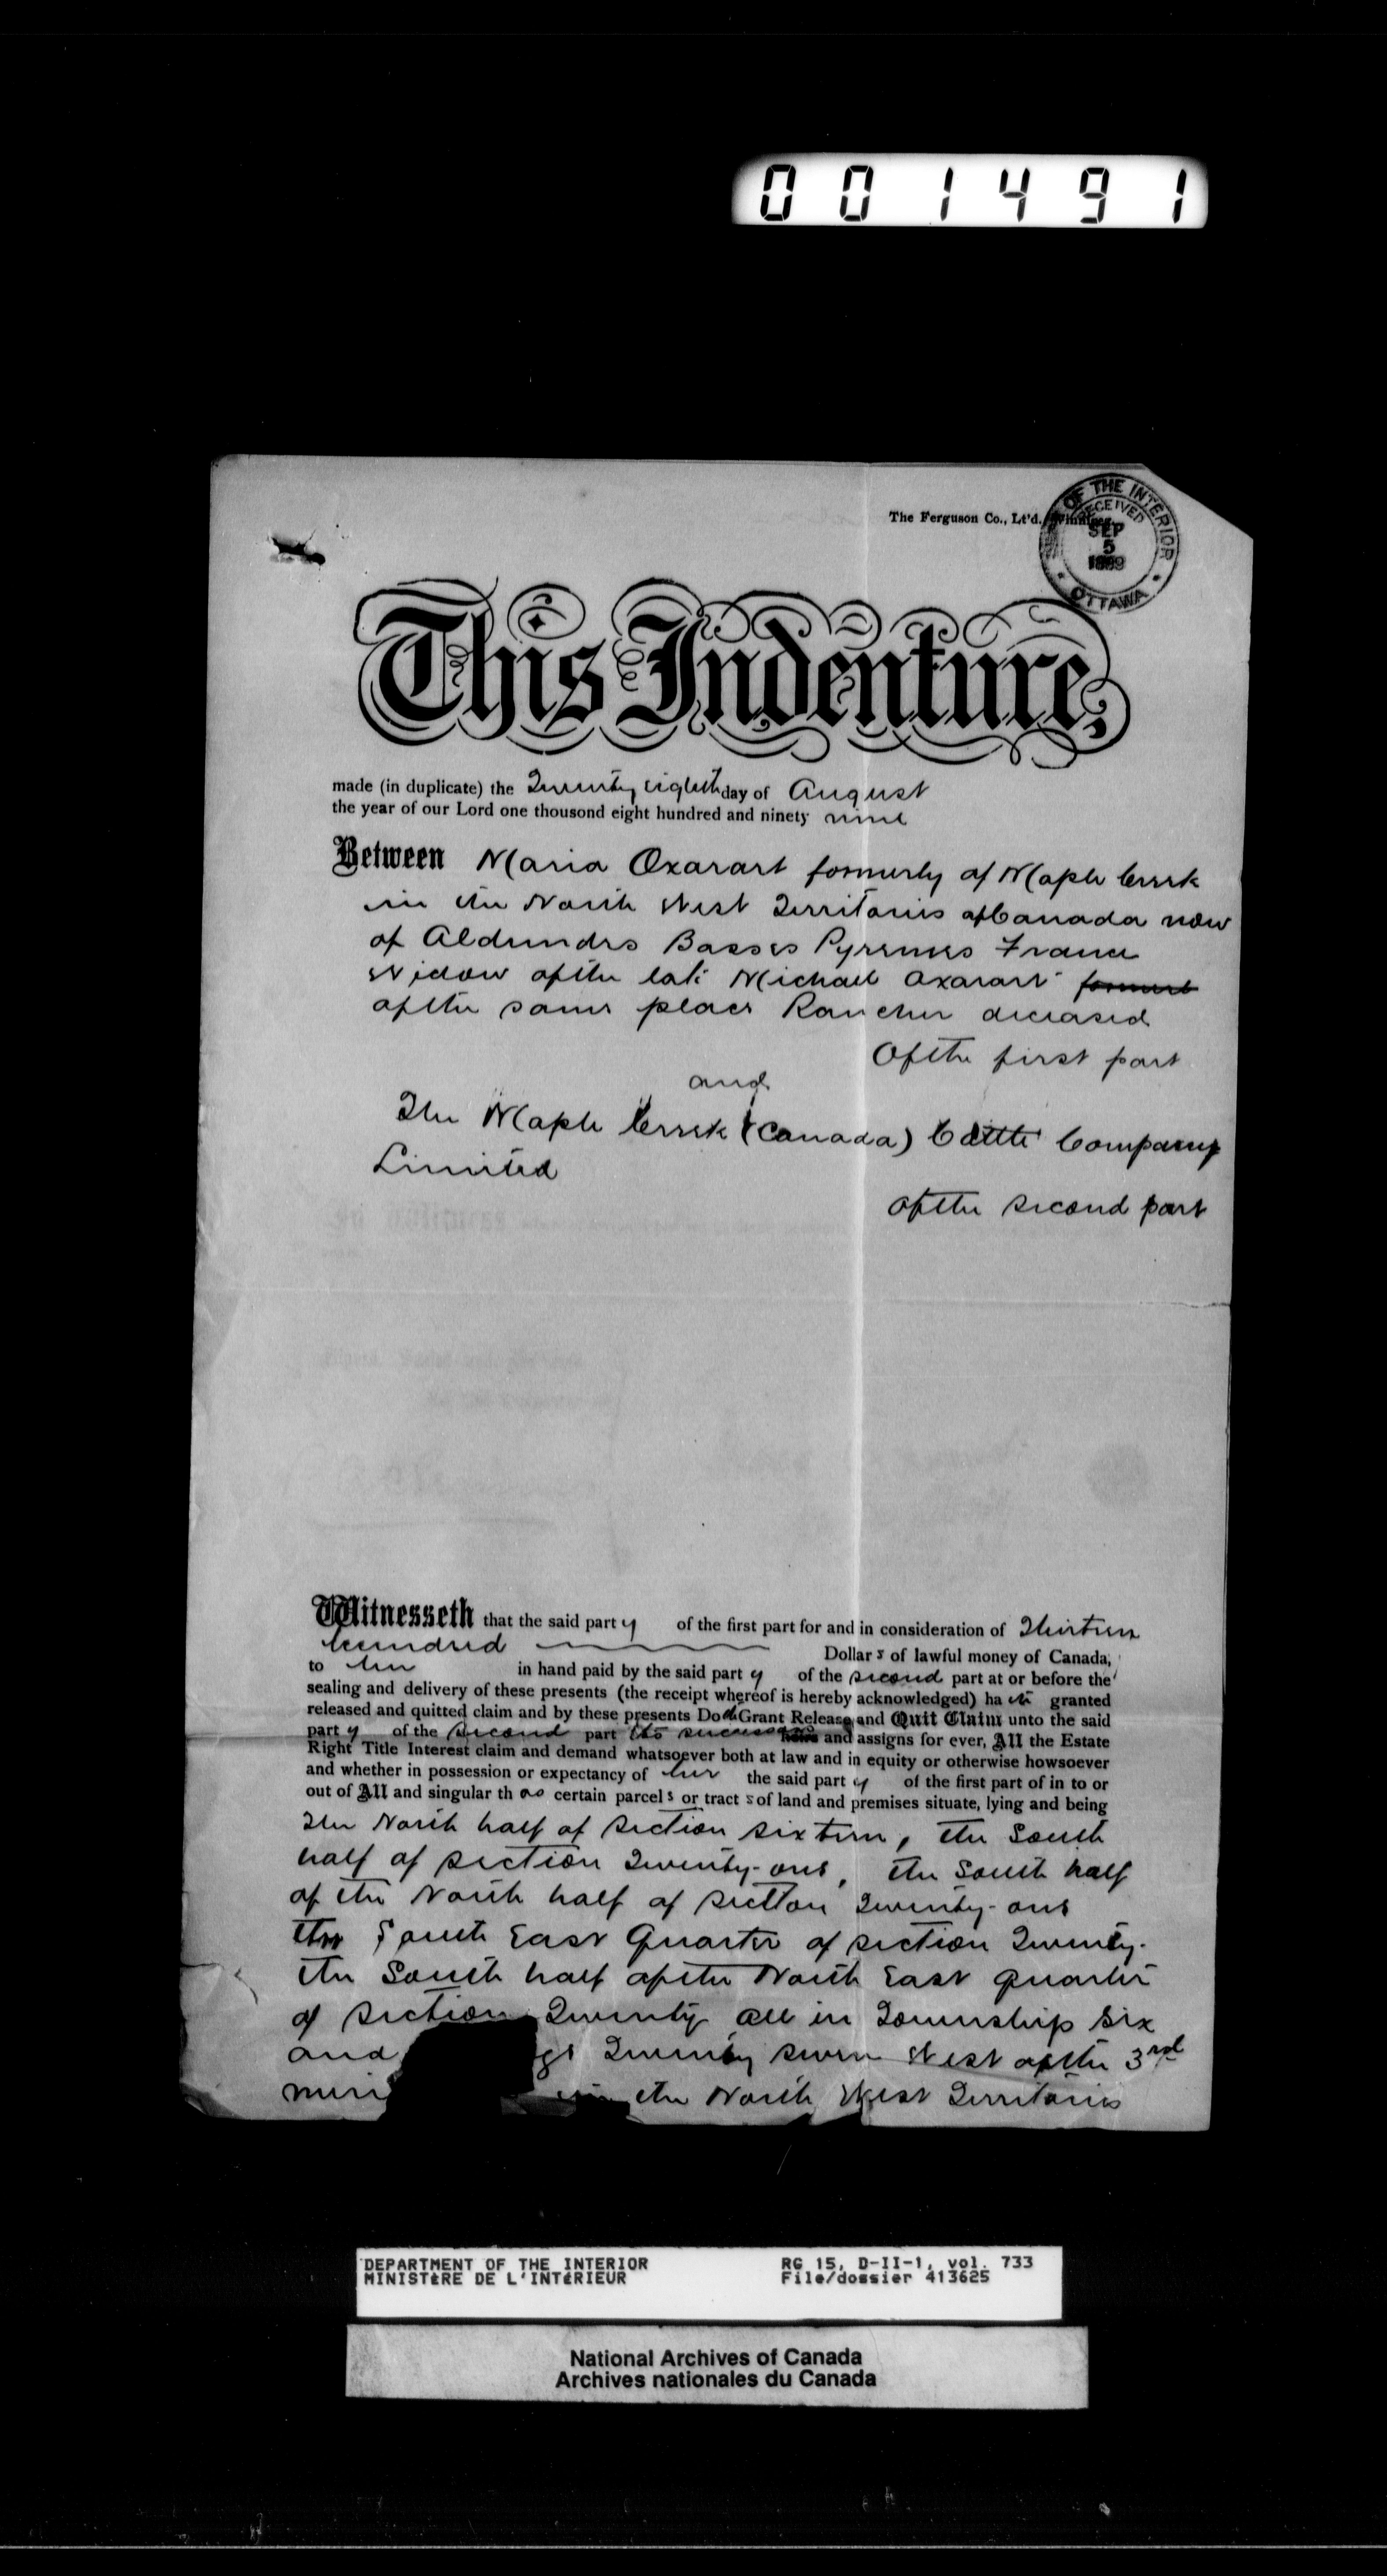 001491
The Ferguson Co., Lt'd. Winnipeg.
OF THE INTERIOR
RECEIVED
SEP
5
1899
OTTAWA
This Indenture,
made (in duplicate) the Twenty eighth day of August
the year of our Lord one thousand eight hundred and ninety nine
Between Maria Oxarart formerly of Maple Creek
in the North West Territories of Canada now
of Aldundes Basses Pyrenees France
Widow of the late Michael Oxarart
of the same place Rancher deceased
Of the first part
and
The Maple Creek (Canada) Cattle Company
Limited
of the second part
Witnesseth that the said party of the first part for and in consideration of Thirteen
hundred Dollars of lawful money of Canada,
to her in hand paid by the said party of the second part at or before the
sealing and delivery of these presents (the receipt whereof is hereby acknowledged) hath granted
released and quitted claim and by these presents Doth Grant Release and Quit Claim unto the said
party of the second part its successors heirs and assigns for ever, All the Estate
Right Title Interest claim and demand whatsoever both at law and in equity or otherwise howsoever
and whether in possession or expectancy of her the said party of the first part of in to or
out of All and singular those certain parcels or tracts of land and premises situate, lying and being
The North half of section sixteen, the South
half of section Twenty-one, the South half
of the North half of section Twenty-one
the South East Quarter of section Twenty-
the South half of the North East quarter
of section Twenty all in Township six
and ge Twenty seven West of the 3rd
meri in the North West Territories
DEPARTMENT OF THE INTERIOR RG 15, D-II-1, vol. 733
MINISTÈRE DE L'INTÉRIEUR File/dossier 413625
National Archives of Canada
Archives nationales du Canada